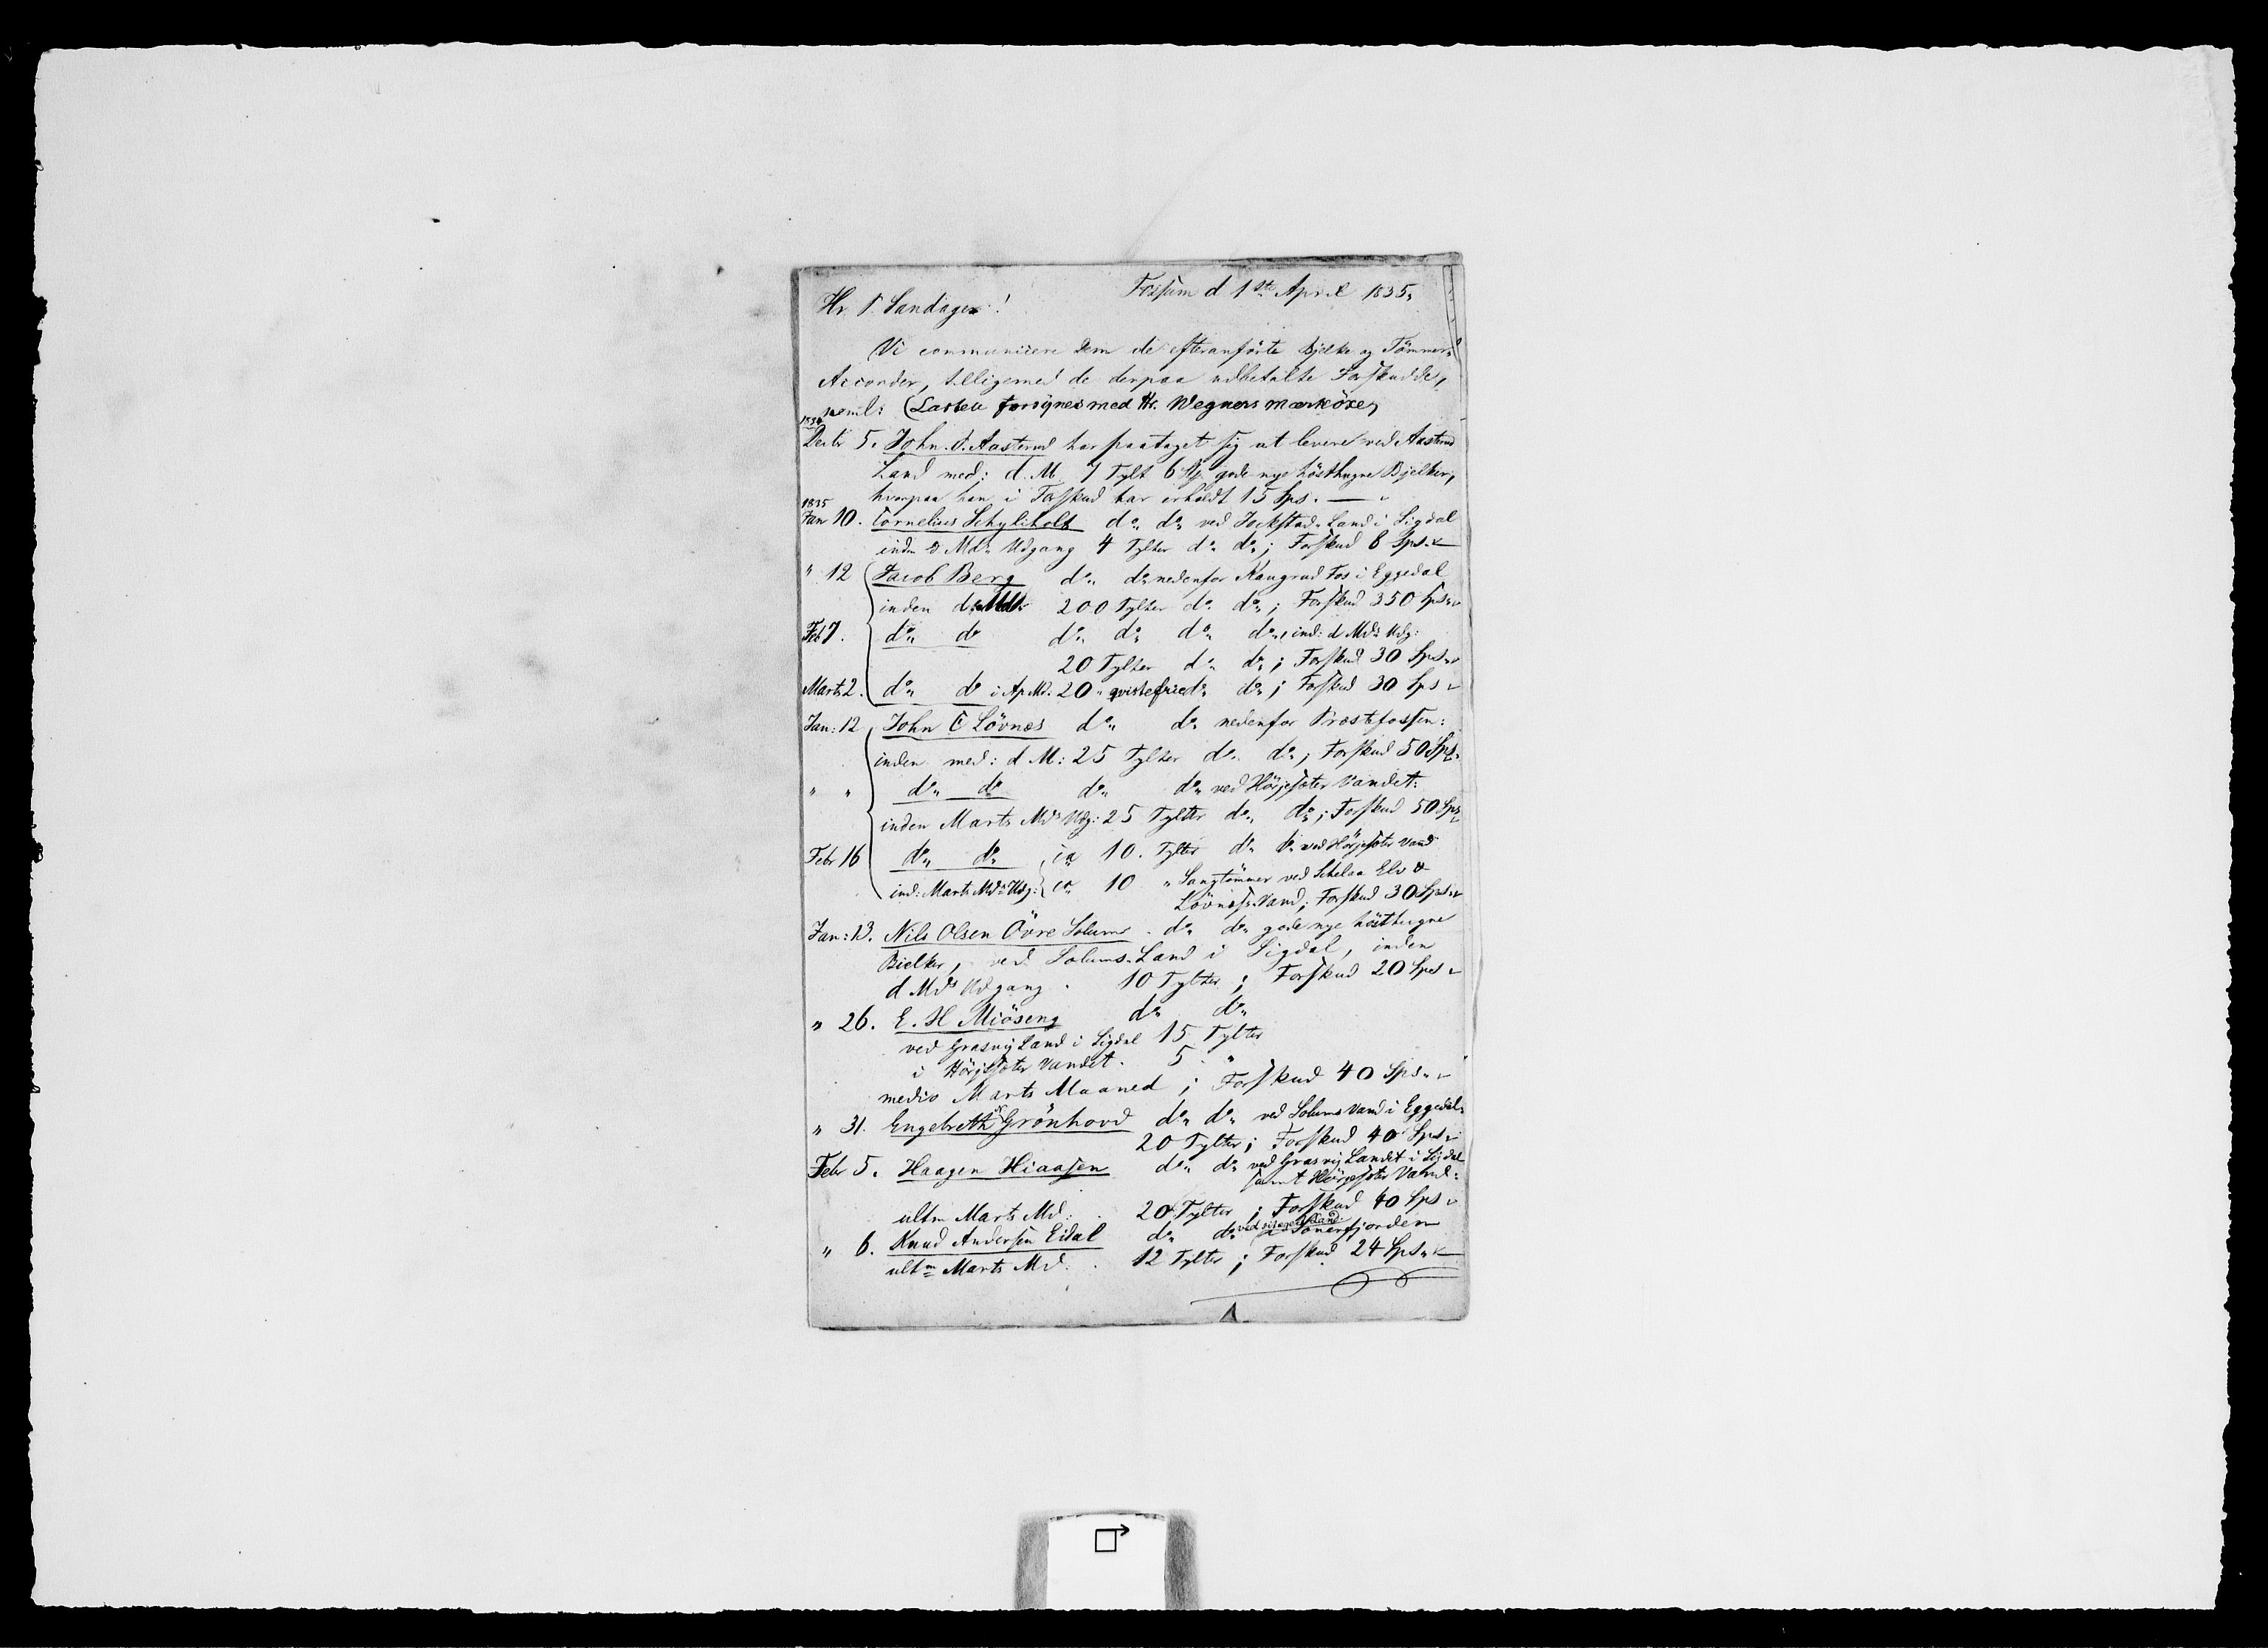 Fossum d 1ste April 1835.
Hr. P. Sandager!
Vi communicere Dem de efteranførte Bjelke og Tömmer
Accorder, tilligemed de derpaa udbetalte Forskudde,
neml: (Lasten forsynes med Hr. Wegners mærkøxe)
1834
Decbr 5. John O. Aasterud har paataget sig at levere ved Aasterud
Land med: d. M. 7 Tylt 6 St. gode nye hösthugne Bjelker,
hvorpaa han i Forskud har erholdt 15 Sps.
1835
Jan 10. Cornelius Schyliholt do do ved Jockstad Land i Sigdal
inden d Mds Udgang 4 Tylter do do; Forskud 8 Sps.
" 12 Jacob Berg do do nedenfor Kaugrud Fos i Eggedal
inden 200 Tylter do do; Forskud 350 Sps.
Feb 7. do do do do do do, ind: d Mds Udg:
20 Tylter do do; Forskud 30 Sps.
Marts 2. do do i Ap. Md. 20 " qvistefrie do do; Forskud 30 Sps
Jan: 12 John C Lövnæs do do nedenfor Præstefossen:
inden med: d M: 25 Tylter do do; Forskud 50 Sps.
" " do do do do ved Hörjesæter Vandet:
inden Marts Mds Udg: 25 Tylter do do; Forskud 50 Sps.
Febr 16 do do ca 10. Tylter do do ved Hörjesæter Vand
ind: Marts Mds Udg: ca 10 " Langtömmer ved Schelaa Elv &
Lövnæs Vand; Forskud 30 Sps.
Jan: 13. Nils Olsen Övre Solum do do gode nye hösthugne
Bielker, ved Solums Land i Sigdal, inden
d Mds Udgang. 10 Tylter; Forskud 20 Sps
" 26. E. H Miöseng do do
ved Grasvig Land i Sigdal 15 Tylter
i Hörjesæter Vandet. 5 "
medio Marts Maaned; Forskud 40 Sps.
" 31. Engebreth Grönhovd do do ved Solums Vand i Eggedal
20 Tylter; Forskud 40 Sps
Febr 5. Haagen Hiaasen do do ved Grasvig Landet i Sigdal
samt Hörjesæter Vand:
ultm Marts Md: 20 Tylter; Forskud 40 Sps
" 6. Knud Andersen Eidal do do ved sit eget Land i Sonerfjorden
ultm Marts Md. 12 Tylter; Forskud 24 Sps.